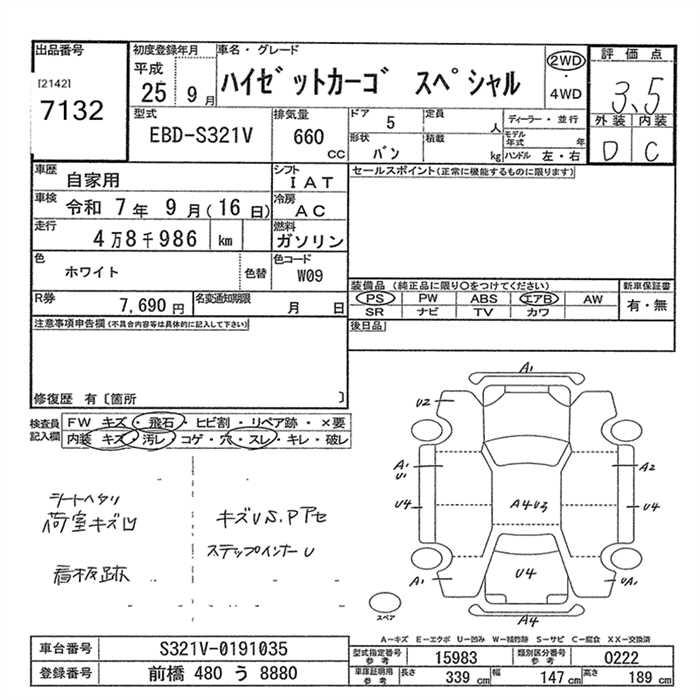 出品番号
[2142]
7132
初度登録年月
平成
25 9 月
車名・グレード
ハイゼットカーゴ スペシャル
2WD
・
4WD
評価点
3.5
外装 内装
D C
型式
EBD-S321V
排気量
660 cc
ドア 5
形状 バン
定員 人
積載 kg
ディーラー・並行
モデル年式 年
ハンドル 左・右
車歴 自家用
シフト IAT
車検 令和 7年 9月(16日)
冷房 AC
走行 4万8千986 km
燃料 ガソリン
色 ホワイト 色替
色コード W09
R券 7,690円
名変通知期限 月 日
セールスポイント(正常に機能するものに限ります)
装備品 (純正品に限り○をつけてください)
PS PW ABS エアB AW
SR ナビ TV カワ
新車保証書
有・無
後日品
注意事項申告欄(不具合内容等は具体的に記入して下さい)
修復歴 有〔箇所 〕
検査員記入欄
FW キズ・飛石・ヒビ割・リペア跡・×要
内装 キズ・汚レ・コゲ・穴・スレ・キレ・破レ
シートヘタリ
荷室キズ凹
看板跡
キズUS.Pアセ
ステップインナーU
A1
U2
A1
U1
A2
U4
A4U3
U4
A1
U4
UA1
A4
スペア
A-キズ E-エクボ U-凹み W-補修跡 S-サビ C-腐食 XX-交換済
車台番号 S321V-0191035
登録番号 前橋 480 う 8880
型式指定番号参考 15983
類別区分番号参考 0222
車庫証明用参考 長さ 339 cm 幅 147 cm 高さ 189 cm